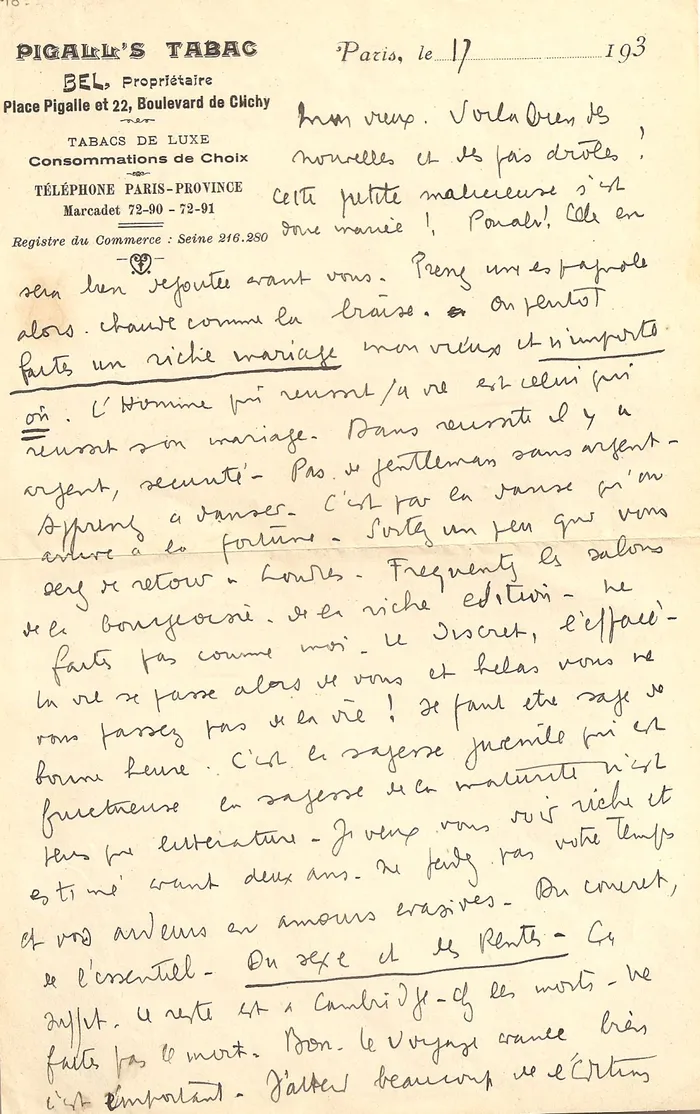 PIGALL'S TABAC
BEL, Propriétaire
Place Pigalle et 22, Boulevard de Clichy
TABACS DE LUXE
Consommations de Choix
TÉLÉPHONE PARIS-PROVINCE
Marcadet 72-90 - 72-91
Registre du Commerce : Seine 216.280
Paris, le 17 193 3
Mon vieux. Voila bien des
nouvelles et des pas drôles !
Cette petite malicieuse s'est
donc mariée ! Pouah ! Elle en
sera bien dégoutée avant vous. Prenez une espagnole
alors. chaude comme la braise. Ou plutot
faites un riche mariage mon vieux et n'importe
où. L'Homme qui reussit la vie est celui qui
reussit son mariage. Dans reussite il y a
argent, securité - Pas de gentleman sans argent -
Apprenez a danser. C'est par la danse qu'on
arrive à la fortune - Sortez un peu que vous
serez de retour a Londres. Frequentez les salons
de la bourgeoisie. de la riche edition - Ne
faites pas comme moi. Le Discret, l'effacé -
La vie se passe alors de vous et helas vous ne
vous passez pas de la vie ! Il faut etre sage de
bonne heure. C'est la sagesse juvenile qui est
fructueuse la sagesse de la maturité n'est
plus que litterature - Je veux vous voir riche et
estimé avant deux ans. Ne perdez pas votre temps
et vos ardeurs en amours evasives - Du concret,
de l'essentiel - Du sexe et des Rentes - Ça
suffit. Le reste est a Cambridge - chez les morts - Ne
faites pas le mort. Bon. Le Voyage avance bien
c'est important. J'attend beaucoup de